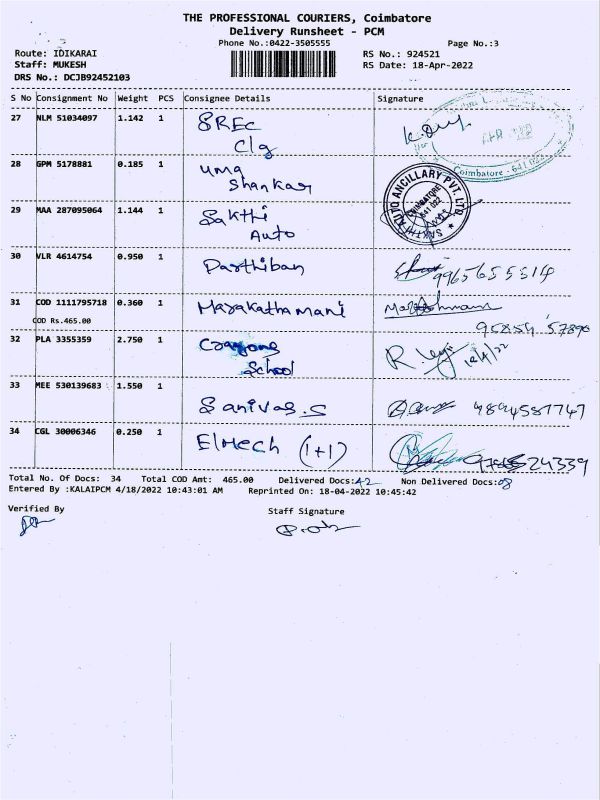 THE PROFESSIONAL COURIERS, Coimbatore
Delivery Runsheet - PCM
Phone No.:0422-3505555 Page No.:3
Route: IDIKARAI RS No.: 924521
Staff: MUKESH RS Date: 18-Apr-2022
DRS No.: DCJB92452103
S No Consignment No Weight PCS Consignee Details Signature
27 NLM 51034097 1.142 1 SREC
Clg
Coimbatore - 641 022
28 GPM 5178881 0.185 1 Uma
Shankar
SAKTHI AUTO ANCILLARY PVT. LTD.
COIMBATORE
641 022
29 MAA 287095064 1.144 1 Sakthi
Auto
30 VLR 4614754 0.950 1 Parthiban 9965655514
31 COD 1111795718 0.360 1 Marakathamani
COD Rs.465.00
32 PLA 3355359 2.750 1
School
33 MEE 530139683 1.550 1 Sanivas.S 4894587747
34 CGL 30006346 0.250 1 Elmech (1+1)
Total No. Of Docs: 34 Total COD Amt: 465.00 Delivered Docs:42 Non Delivered Docs:08
Entered By :KALAIPCM 4/18/2022 10:43:01 AM Reprinted On: 18-04-2022 10:45:42
Verified By Staff Signature